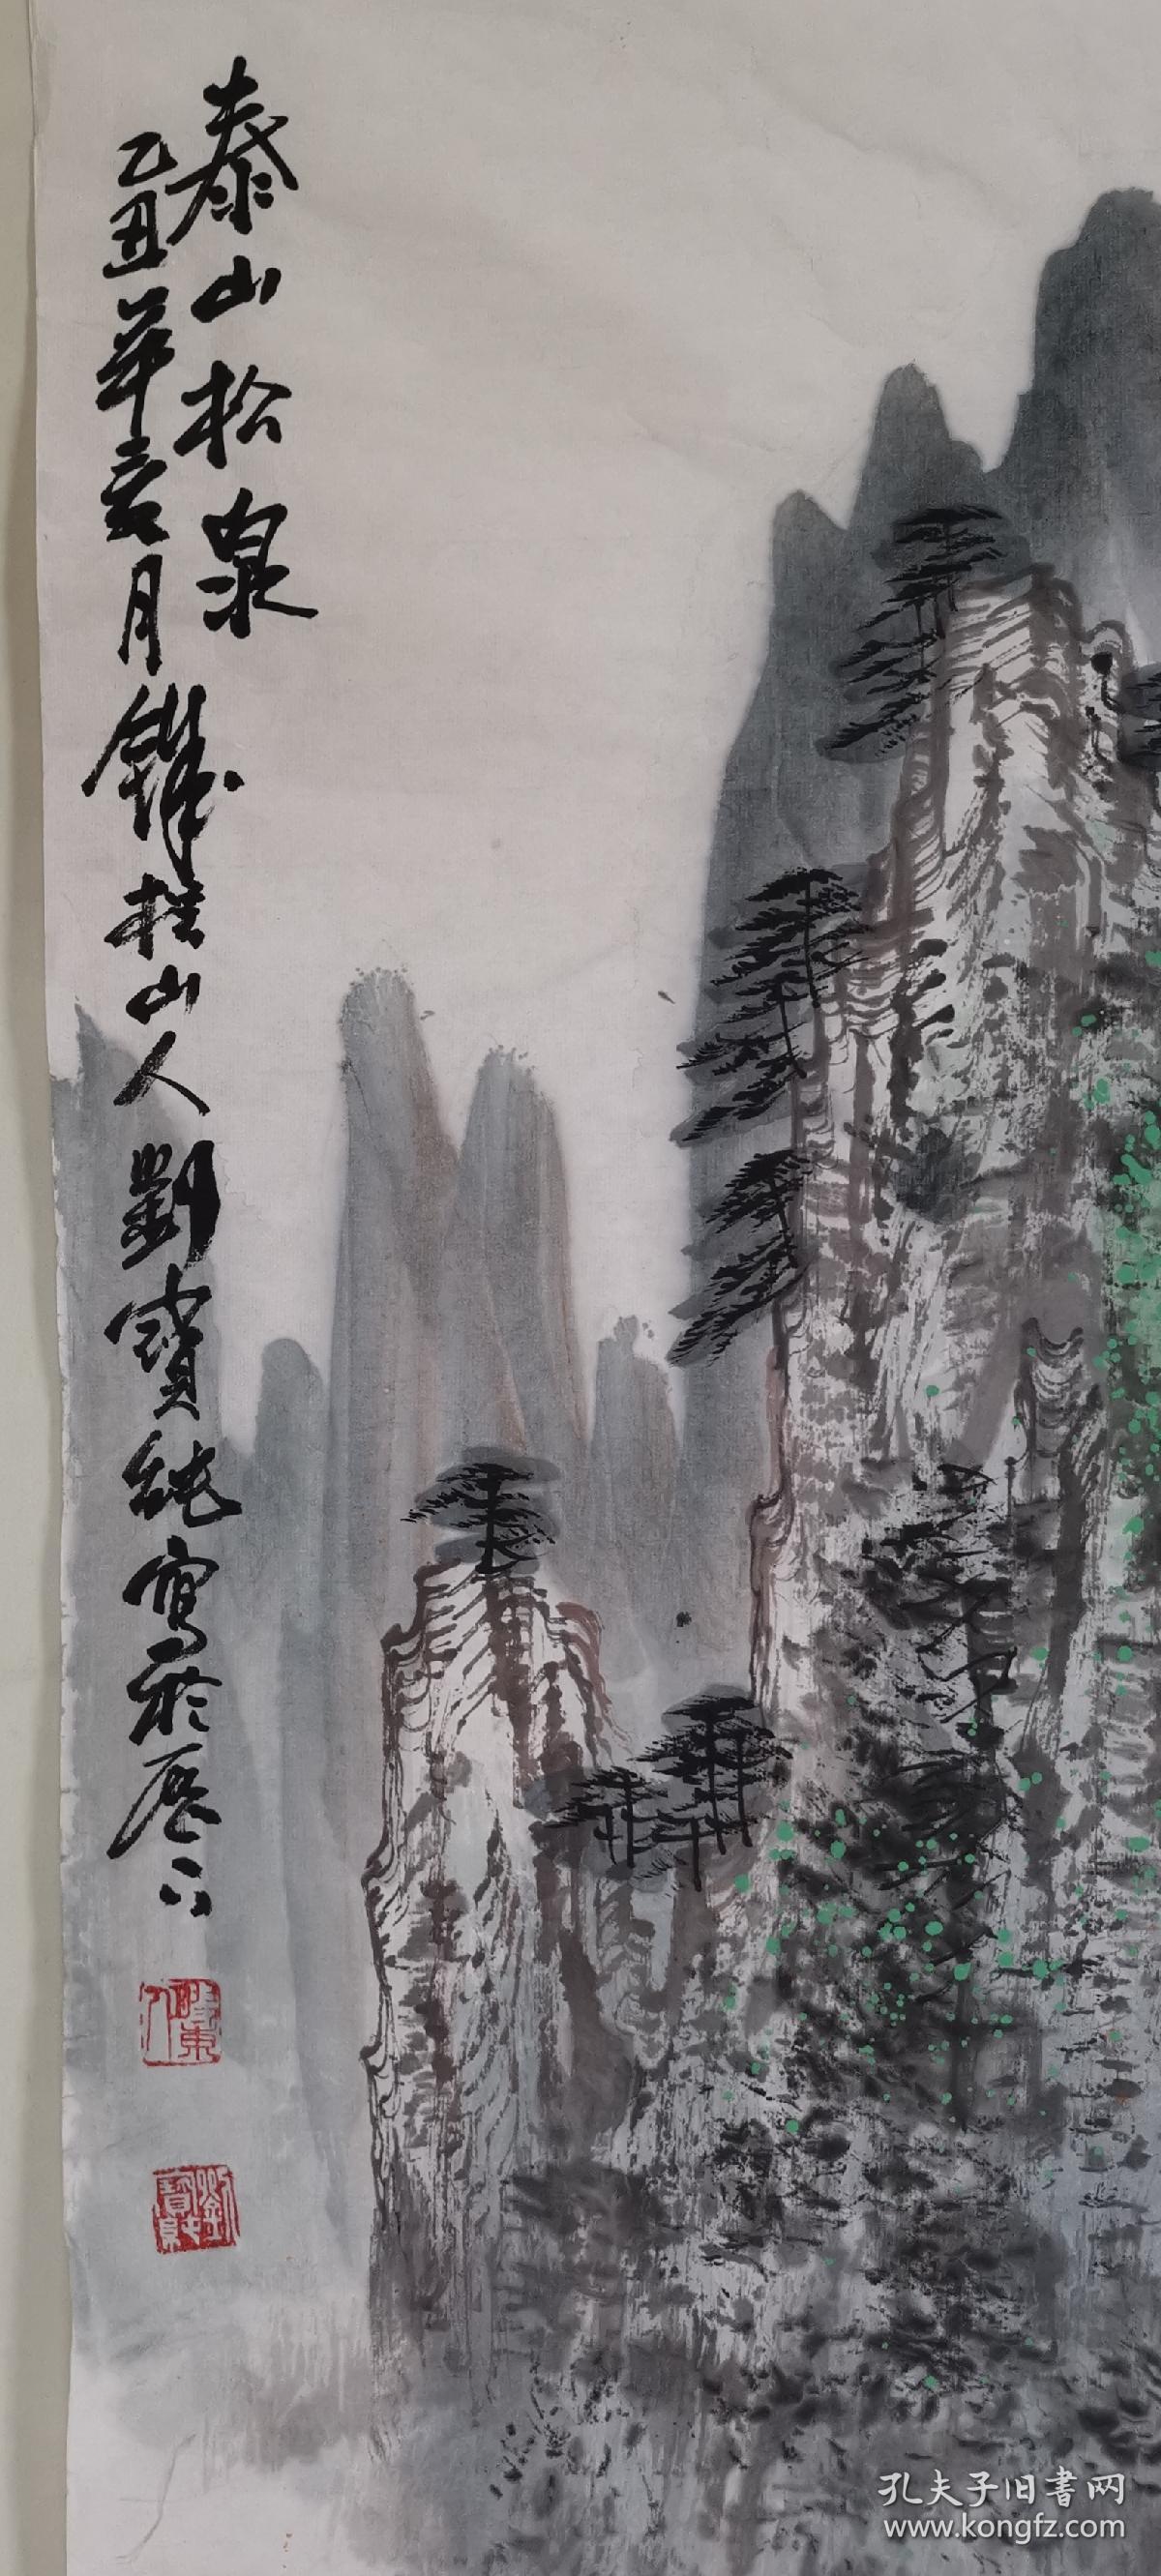 泰山松泉
乙丑年亥月鐵柱山人劉寶純寫於歷下
劉寶純
孔夫子旧書网
www.kongfz.com